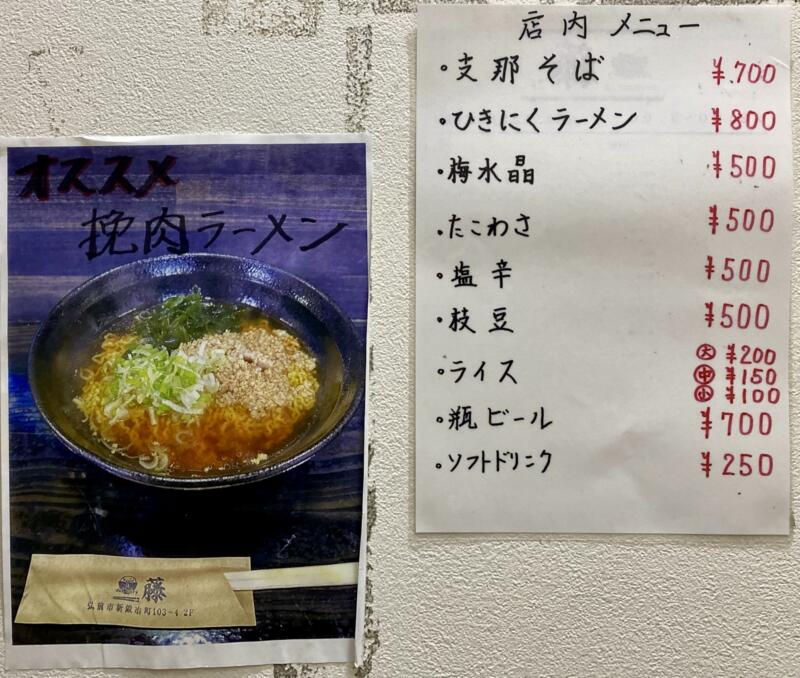 オススメ
挽肉ラーメン
藤
弘前市新鍛冶町103-4 2F
店内 メニュー
・支那そば ¥700
・ひきにくラーメン ¥800
・梅水晶 ¥500
・たこわさ ¥500
・塩辛 ¥500
・枝豆 ¥500
・ライス 大 ¥200
中 ¥150
小 ¥100
・瓶ビール ¥700
・ソフトドリンク ¥250